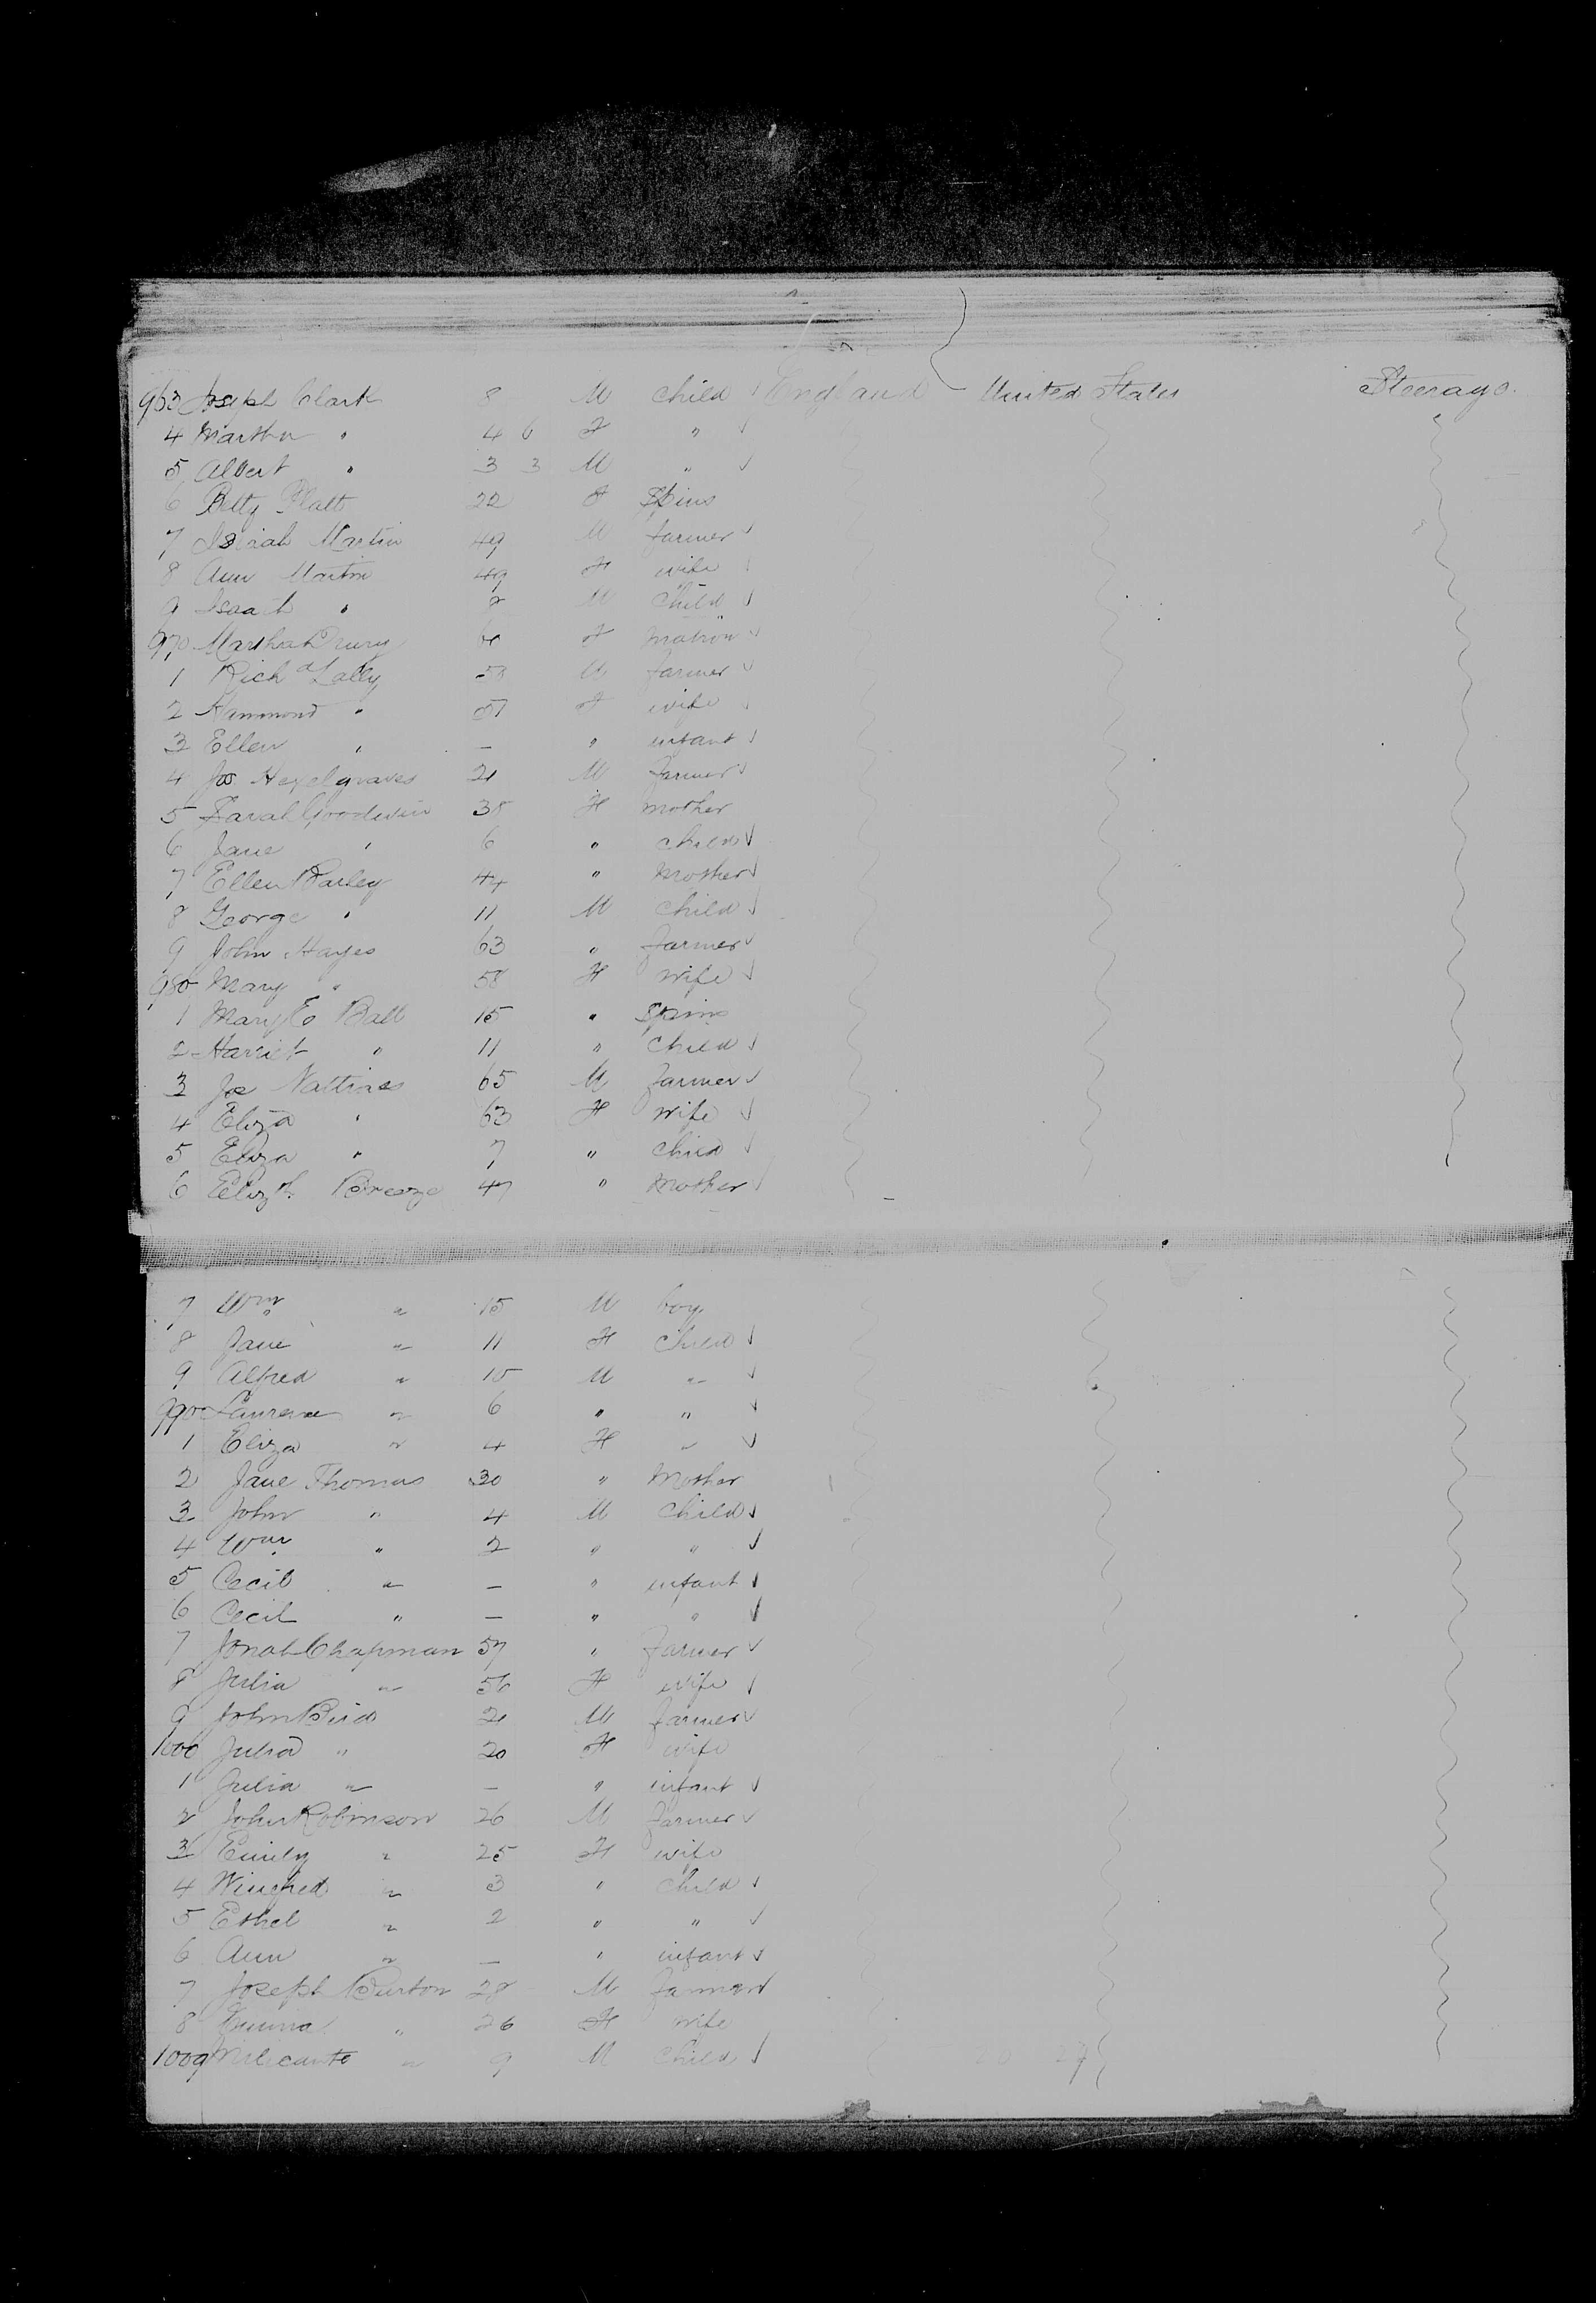 963 Joseph Clark 8 M child √ England United States Steerage
4 Martha " 4 6 F " √
5 Albert " 3 3 M " √
6 Betty Platt 22 F Spins
7 Isaiah Martin 49 M farmer √
8 Ann Martin 49 F wife √
9 Isaah " 8 M Child √
970 Martha Drury 60 F matron √
1 Richd Lally 58 M farmer √
2 Hammond " 57 F wife √
3 Ellen " — " infant √
4 Jos Hazelgraves 21 M farmer √
5 Sarah Goodwin 38 F mother
6 Jane " 6 " child √
7 Ellen Bailey 44 " Mother √
8 George " 11 M child √
9 John Hayes 63 " farmer √
980 Mary " 58 F wife √
1 Mary E Ball 15 " Spins
2 Harriet " 11 " Child √
3 Jos 65 M farmer √
4 Eliza " 63 F wife √
5 Eliza " 7 " child √
6 Elizth Breeze 47 " Mother √
7 Wm " 15 M boy
8 Jane " 11 F child √
9 Alfred " 10 M " √
990 Laurence " 6 " " √
1 Eliza " 4 F " √
2 Jane Thomas 30 " Mother
3 John " 4 M Child √
4 Wm " 2 " " √
5 Cecil " — " infant √
6 Cecil " — " " √
7 Jonah Chapman 57 " Farmer √
8 Julia " 56 F wife √
9 John Bird 21 M farmer √
1000 Julia " 20 F wife
1 Julia " — " infant √
2 John Robinson 26 M farmer √
3 Emily " 25 F wife
4 Winifred " 3 " child √
5 Ethel " 2 " " √
6 Ann " — " infant √
7 Joseph Burton 28 M Farmer √
8 Emma " 26 F wife
1009 " 9 M Child √